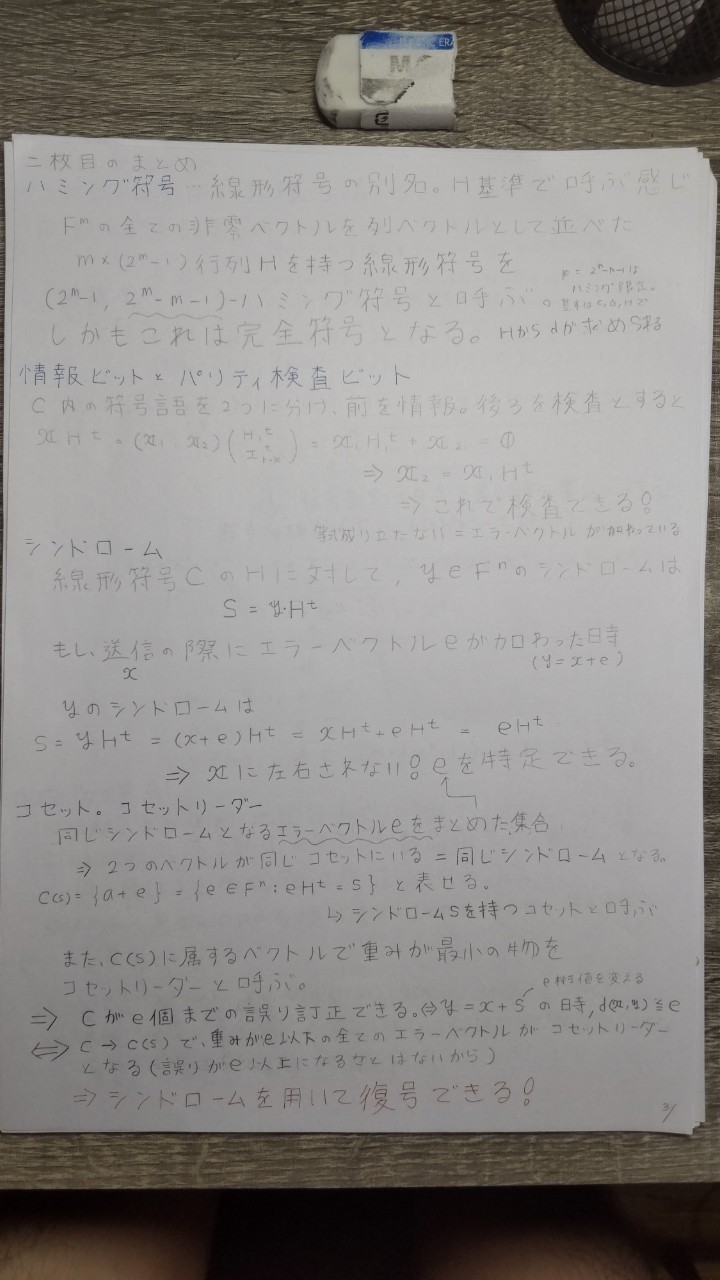 二枚目のまとめ
ハミング符号…線形符号の別名。H基準で呼ぶ感じ
F^mの全ての非零ベクトルを列ベクトルとして並べた
m×(2^m-1)行列Hを持つ線形符号を
(2^m-1, 2^m-m-1)-ハミング符号と呼ぶ。
ハミング限定。
しかもこれは完全符号となる。HからdがもとめSれる
情報ビットとパリティ検査ビット
C内の符号語を2つに分け、前を情報。後ろを検査とすると
xH^t = (x₁, x₂)(H₁^t I^t) = x₁H₁^t + x₂ = 0
⇒ x₂ = x₁H^t
⇒ これで検査できる!
等式成り立たない = エラーベクトルが加わっている
シンドローム
線形符号CのHに対して, y∈F^nのシンドロームは
S = y・H^t
もし、送信の際にエラーベクトルeが加わった時
x (y=x+e)
yのシンドロームは
S = yH^t = (x+e)H^t = xH^t+eH^t = eH^t
⇒ xに左右されない!eを特定できる。
コセット。コセットリーダー
同じシンドロームとなるエラーベクトルeをまとめた集合
⇒ 2つのベクトルが同じコセットにいる = 同じシンドロームとなる。
C(s)={a+e} = {e∈F^n: eH^t=S} と表せる。
↳ シンドロームSを持つコセットと呼ぶ
また、C(S)に属するベクトルで重みが最小の物を
コセットリーダーと呼ぶ。
⇒ Cがe個までの誤り訂正できる。⇔ y=x+S の時, d(x,y)≦e
⇔ C→C(S)で、重みがe以下の全てのエラーベクトルがコセットリーダー
となる(誤りがe以上になることはないから)
⇒ シンドロームを用いて復号できる!
3/